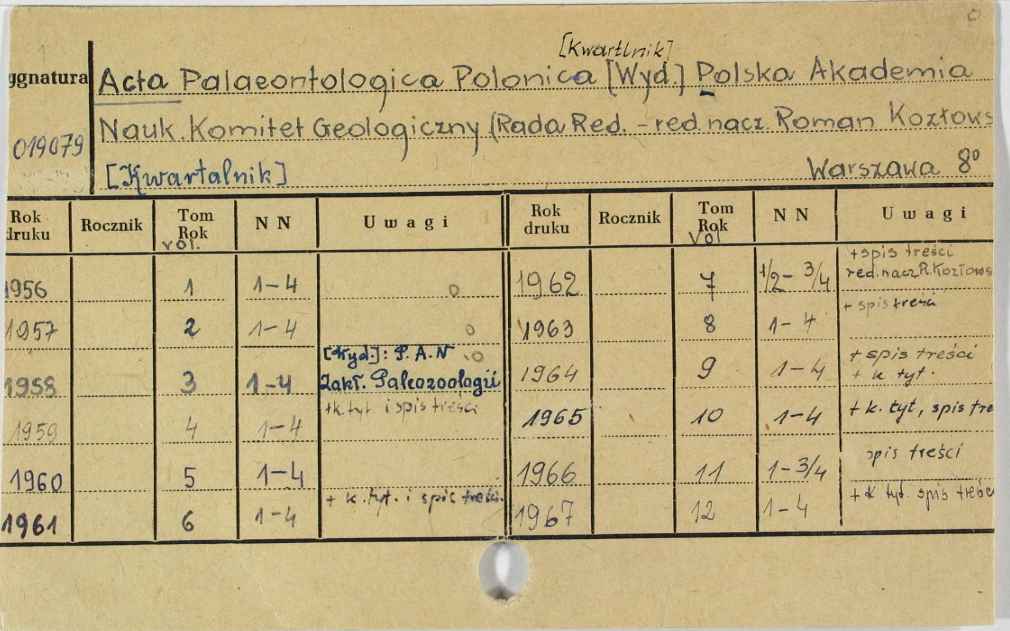 [Kwartlnik]
ygnatura Acta Palaeontologica Polonica [Wyd.] Polska Akademia
019079 Nauk. Komitet Geologiczny (Rada Red. - red. nacz. Roman Kozłows
[Kwartalnik] Warszawa 8°
Rok druku Rocznik Tom Rok vol. NN Uwagi Rok druku Rocznik Tom Rok Vol NN Uwagi
1956 1 1-4 1962 7 1/2-3/4 + spis treści red. nacz. R. Kozłows
1957 2 1-4 1963 8 1-4 + spis treści
1958 3 1-4 [Wyd.]: P.A.N Zakł. Paleozoologii 1964 9 1-4 + spis treści + k tyt.
1959 4 1-4 + k. tyt i spis treści 1965 10 1-4 + k. tyt, spis tre
1960 5 1-4 1966 11 1-3/4 spis treści
1961 6 1-4 + k. tyt. i spis treści. 1967 12 1-4 + k tyt. spis treśc